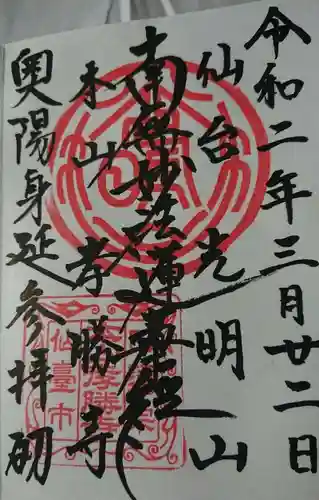 令和二年三月廿二日
仙台光明山
南無妙法蓮華経
本山孝勝寺
奥陽身延参拝砌
仙臺市
孝勝寺